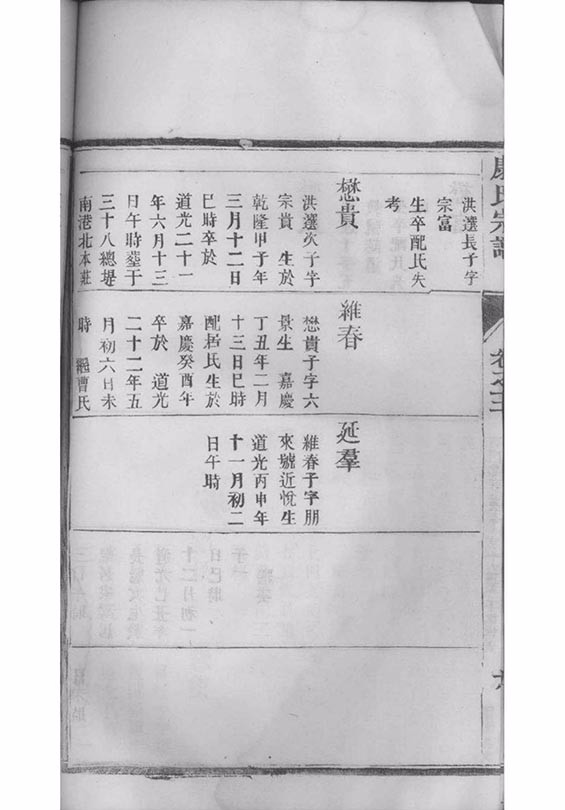 氏宗譜
卷之三
洪選長子字
宗富
生卒配氏失
考
懋貴
洪選次子字
宗貴 生於
乾隆甲子年
三月十二日
巳時卒於
道光二十一
年六月十三
日午時塟于
三十八總堤
南港北本莊
維春
懋貴子字六
景生 嘉慶
丁丑年二月
十三日巳時
配 氏生於
嘉慶癸酉年
卒於 道光
二十二年五
月初六日未
時 繼曹氏
延羣
維春子字朋
來號近悅生
道光丙申年
十一月初二
日午時